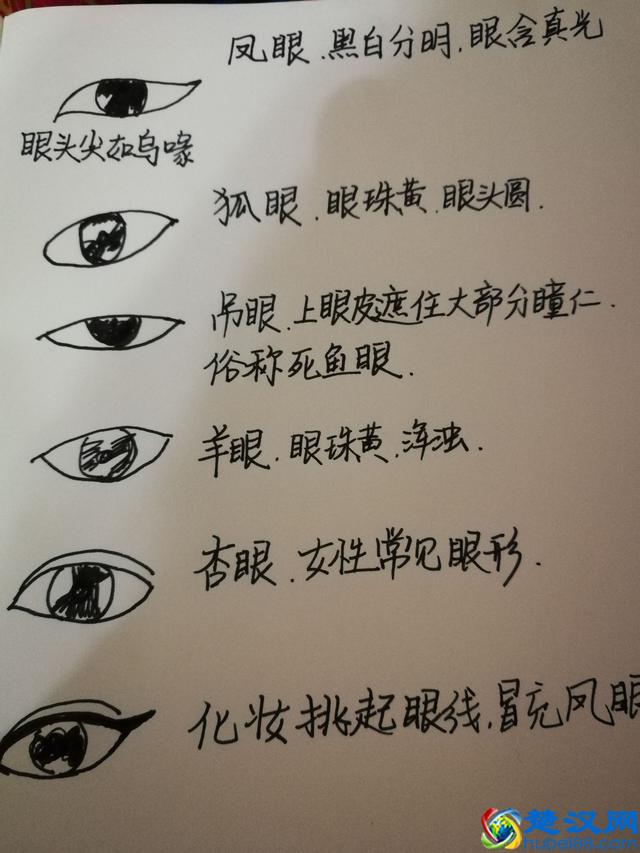 凤眼.黑白分明.眼含真光
眼头尖如鸟喙
狐眼.眼珠黄.眼头圆.
吊眼.上眼皮遮住大部分瞳仁.
俗称死鱼眼.
羊眼.眼珠黄.浑浊.
杏眼.女性常见眼形.
化妆挑起眼线.冒充凤眼
楚汉网